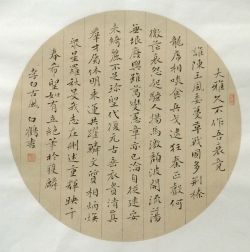 大雅久不作吾衰竟
誰陳王風委蔓草戰國多荊榛
龍虎相啖食兵戈逮狂秦正聲何
微茫哀怨起騷人揚馬激頹波開流蕩
無垠廢興雖萬變憲章亦已淪自從建安
來綺麗不足珍聖代復元古垂衣貴清真
群才屬休明乘運共躍鱗文質相炳煥
眾星羅秋旻我志在刪述垂輝映千
春希聖如有立絕筆於獲麟
李白古風 白鶴書